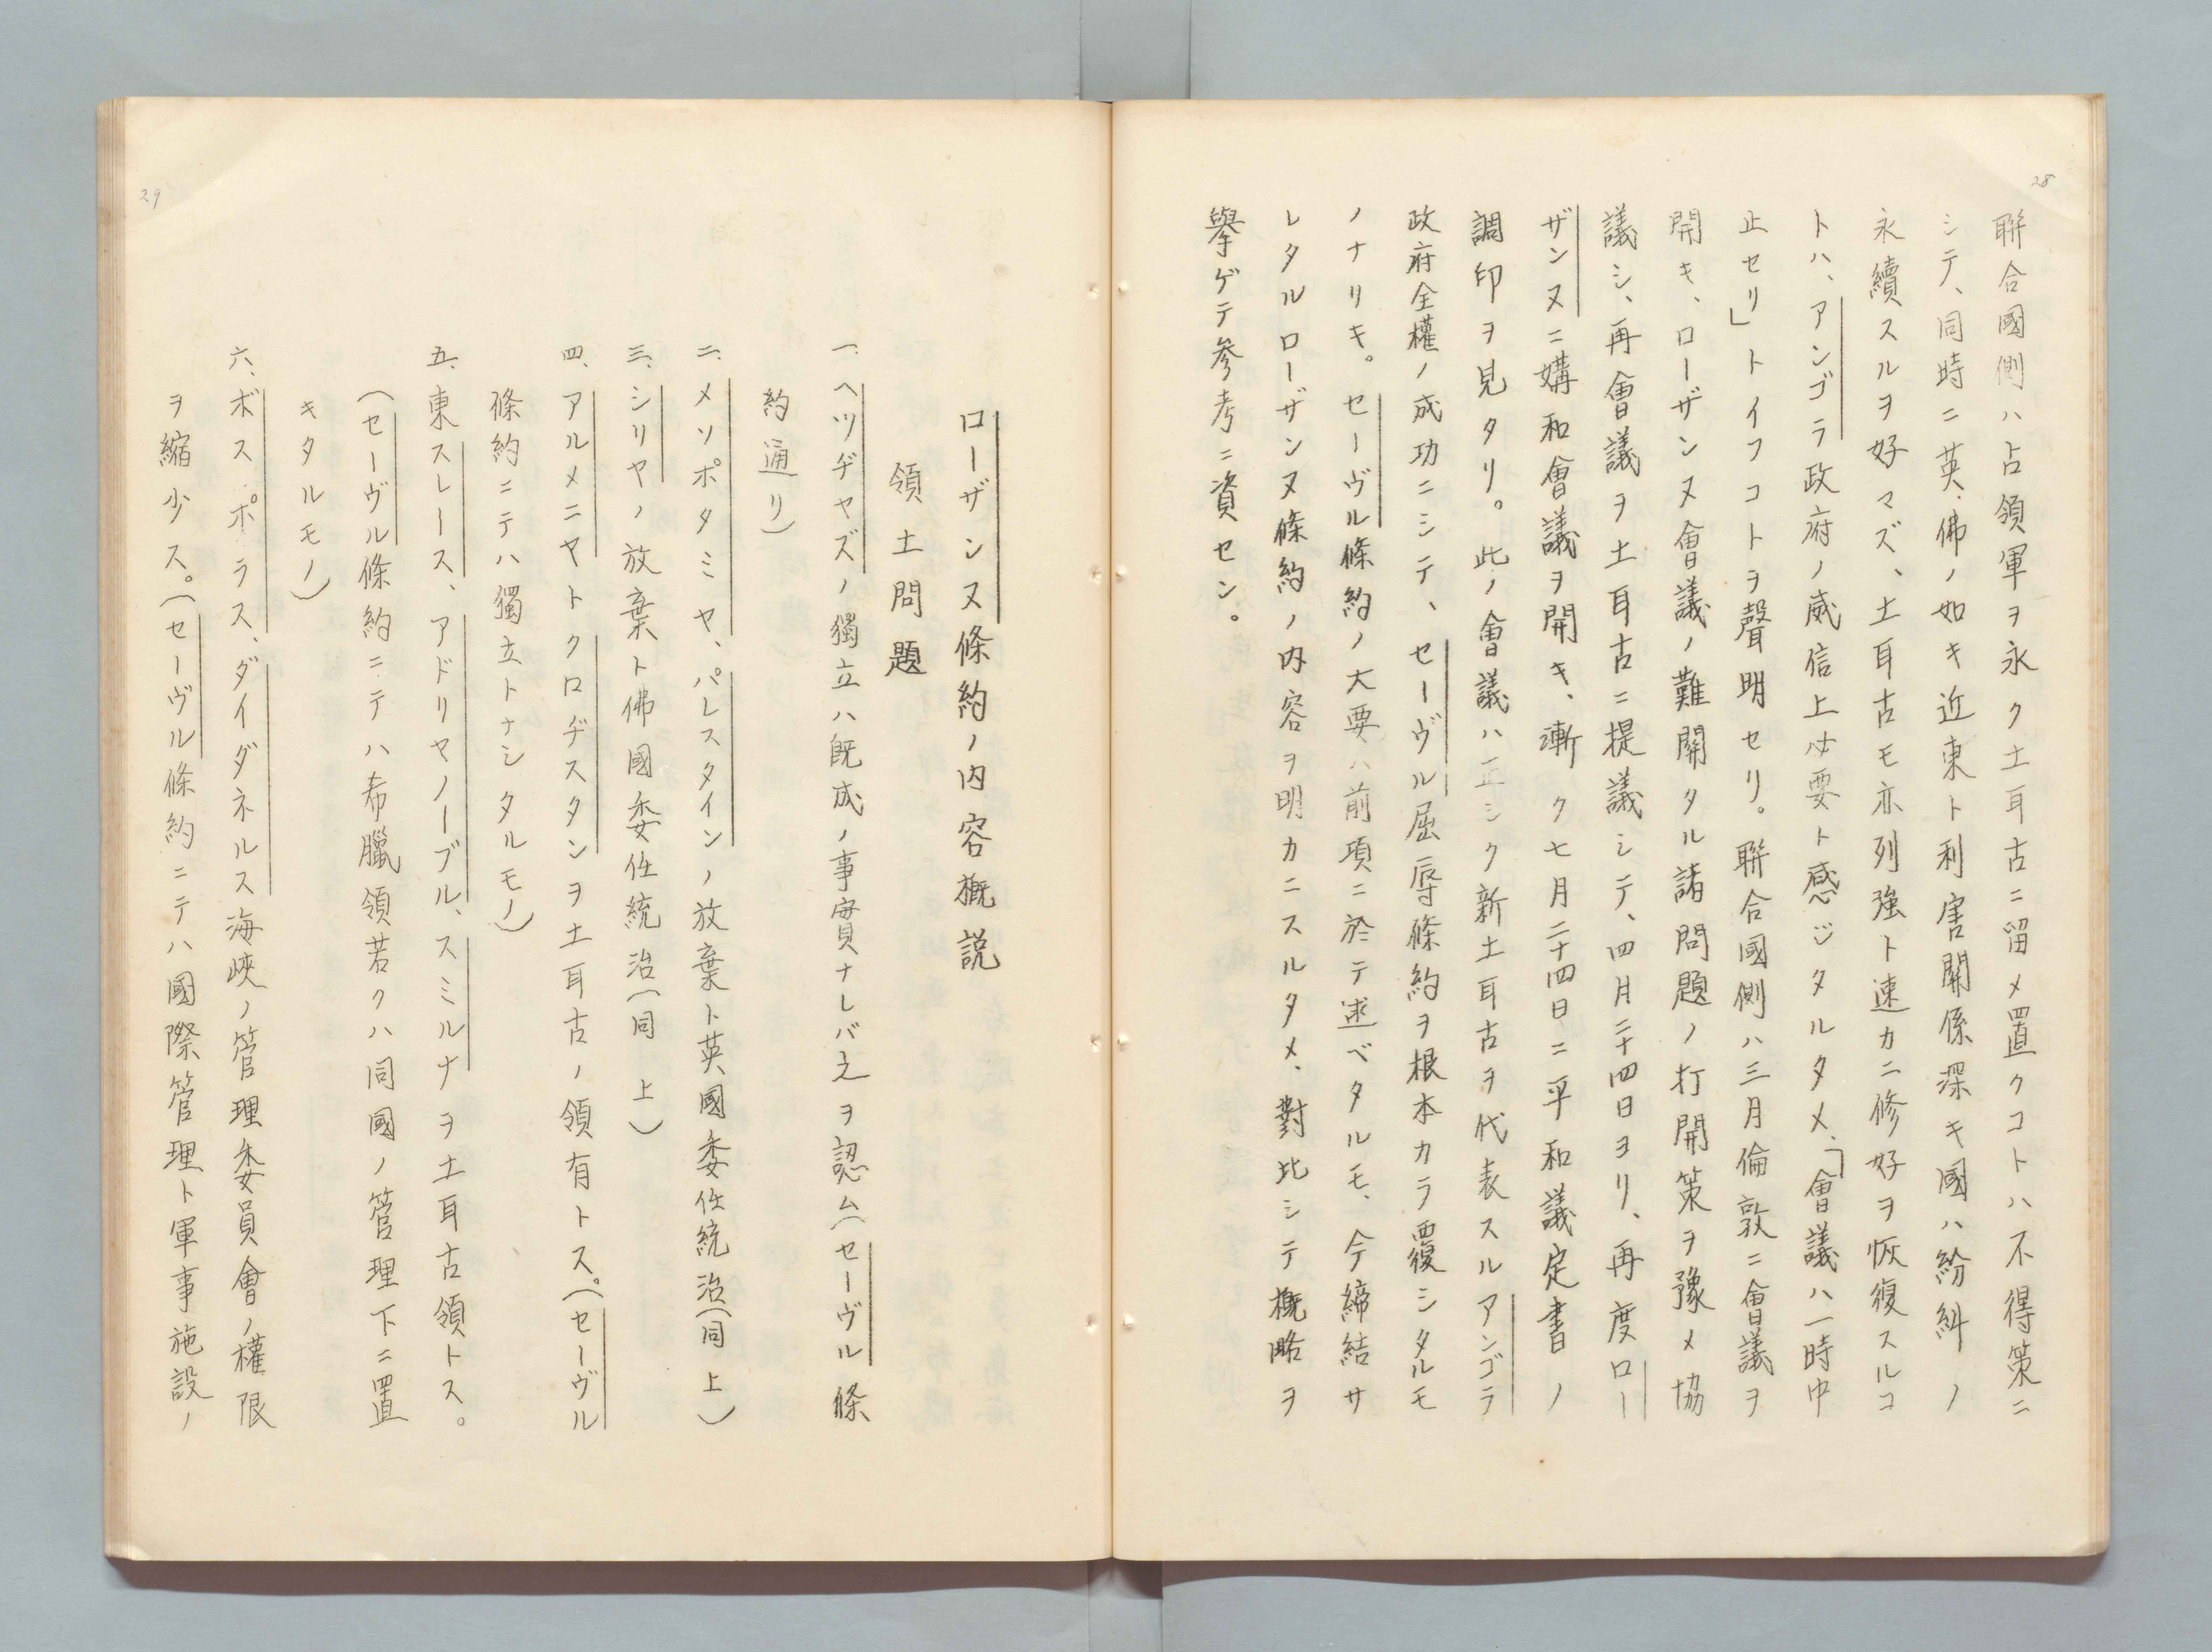 28
聯合國側ハ占領軍ヲ永ク土耳古ニ留メ置クコトハ不得策ニ
シテ、同時ニ英.佛ノ如キ近東ト利害關係深キ國ハ紛糾ノ
永續スルヲ好マズ、土耳古モ亦列強ト速カニ修好ヲ恢復スルコ
トハ、アンゴラ政府ノ威信上必要ト感ジタルタメ、「會議ハ一時中
止セリ」トイフコトヲ聲明セリ。聯合國側ハ三月倫敦ニ會議ヲ
開キ、ローザンヌ會議ノ難關タル諸問題ノ打開策ヲ豫メ協
議シ、再會議ヲ土耳古ニ提議シテ、四月二十四日ヨリ、再度ロー
ザンヌニ媾和會議ヲ開キ、漸ク七月二十四日ニ平和議定書ノ
調印ヲ見タリ。此ノ會議ハ正シク新土耳古ヲ代表スルアンゴラ
政府全權ノ成功ニシテ、セーヴル屈辱條約ヲ根本カラ覆シタルモ
ノナリキ。セーヴル條約ノ大要ハ前項ニ於テ述ベタルモ、今締結サ
レタルローザンヌ條約ノ内容ヲ明カニスルタメ、對比シテ概略ヲ
擧ゲテ參考ニ資セン。
29
ローザンヌ條約ノ内容概説
領土問題
一、ヘツヂヤズノ獨立ハ既成ノ事實ナレバ之ヲ認ム(セーヴル條
約通リ)
二、メソポタミヤ、パレスタインノ放棄ト英國委任統治(同上)
三、シリヤノ放棄ト佛國委任統治(同上)
四、アルメニヤトクロヂスタンヲ土耳古ノ領有トス。(セーヴル
條約ニテハ獨立トナシタルモノ)
五、東スレース、アドリヤノーブル、スミルナヲ土耳古領トス。
(セーヴル條約ニテハ希臘領若クハ同國ノ管理下ニ置
キタルモノ)
六、ボスポラス、ダイダネルス海峽ノ管理委員會ノ權限
ヲ縮少ス。(セーヴル條約ニテハ國際管理ト軍事施設ノ